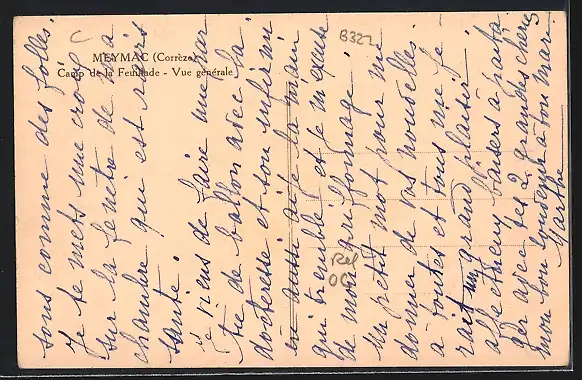 MEYMAC (Corrèze)
Camp de la Feuillade - Vue générale
B322
Rel
OG
sous comme des folles.
Je te mets une croix
sur la fenêtre de ma
chambre qui est
sante.
Je viens de faire une par
tie de ballon avec la
doctoresse et son infirmi
aussi aije la main
qui tremble et je m'excuse
de mon griffonnage.
Un petit mot pour me
donner de vos nouvelles
à toutes et tous me fe
rait un grand plaisir.
affectueux baisers à parta
ger avec tes 2 grandes chéries
mon bon souvenir à ton mari.
Marthe